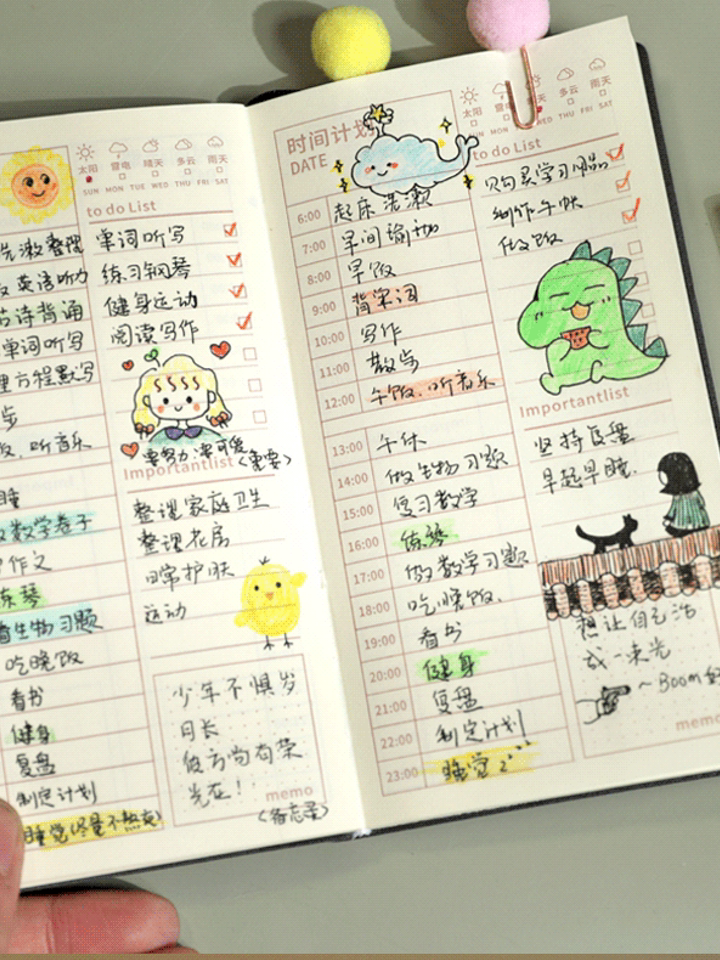 太阳 雷电 晴天 多云 雨天
SUN MON TUE WED THU FRI SAT
to do List
单词听写
练习钢琴
健身运动
阅读写作
要努力 要可爱
Importantlist (重要)
整理家庭卫生
整理花房
日常护肤
运动
少年不惧岁
月长
彼方尚有荣
光在！
memo
(备忘录)
洗漱整理
英语听力
古诗背诵
单词听写
理方程默写
步
饭，听音乐
睡
数学卷子
作文
练琴
看生物习题
吃晚饭
看书
健身
复盘
制定计划
睡觉(尽量不熬夜)
时间计划
DATE
6:00 起床洗漱
7:00 早间瑜伽
8:00 早饭
9:00 背单词
10:00 写作
11:00 散步
12:00 午饭，听音乐
13:00 午休
14:00 做生物习题
15:00 复习数学
16:00 练琴
17:00 做数学习题
18:00 吃晚饭.
19:00 看书
20:00 健身
21:00 复盘
22:00 制定计划
23:00 睡觉 z
太阳 天 多云 雨天
SUN MON WED THU FRI SAT
to do List
购买学习用品
制作手帐
做饭
Importantlist
坚持复盘
早起早睡.
想让自己活
成一束光
~Boom
memo